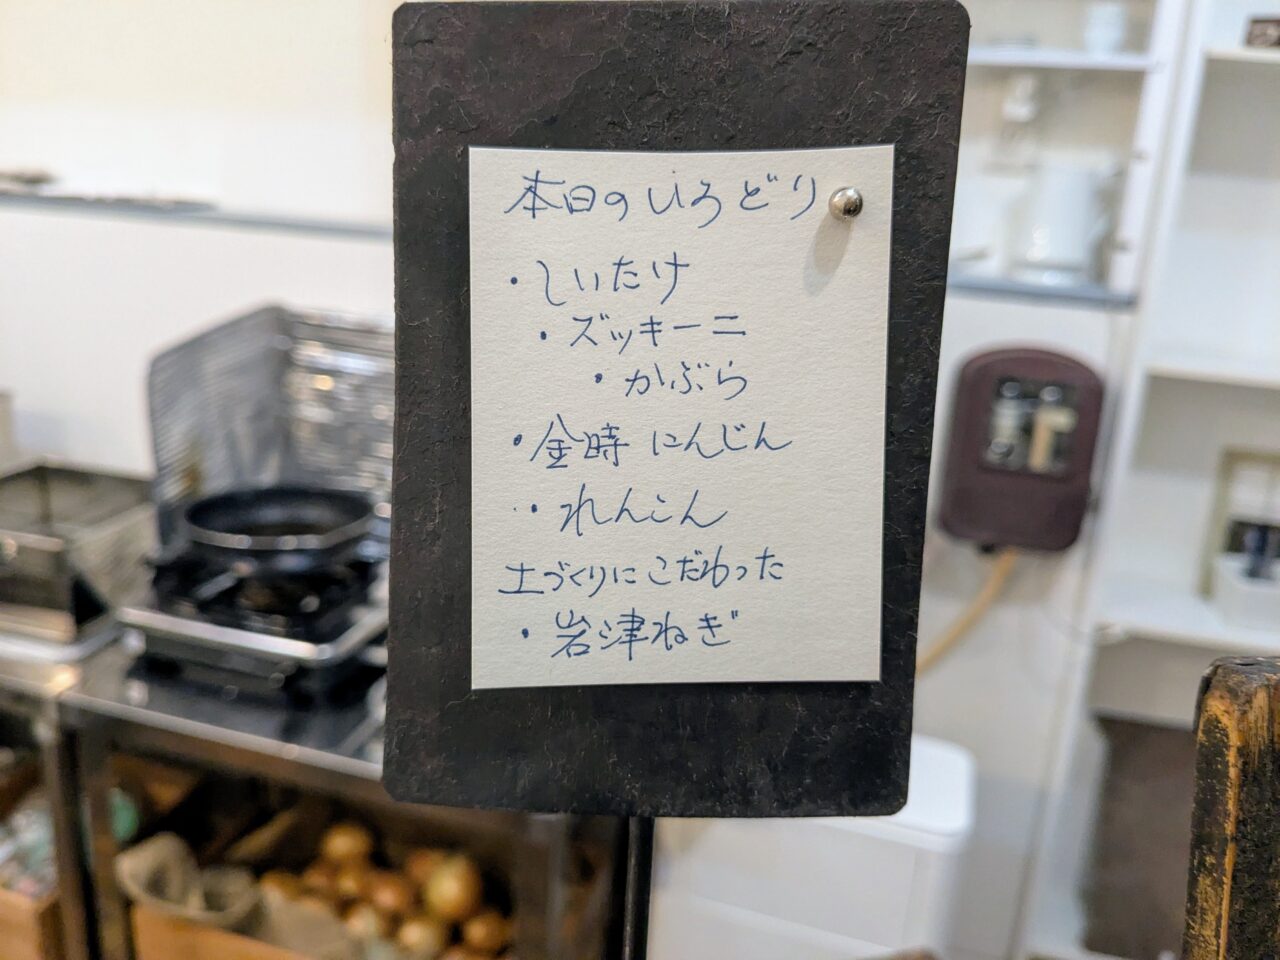 本日のいろどり
・しいたけ
・ズッキーニ
・かぶら
・金時にんじん
・れんこん
土づくりにこだわった
・岩津ねぎ